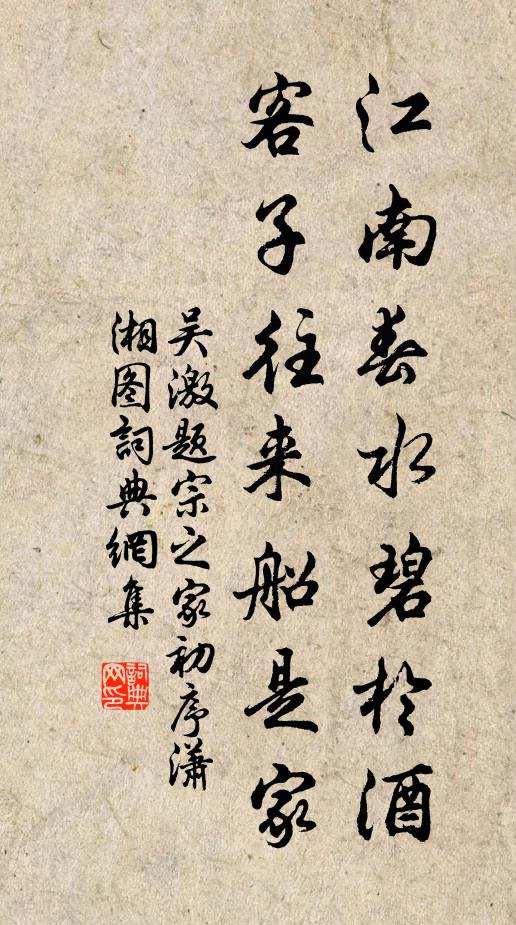 江南春水碧於酒
客子往来船是家
吴激题宗之家初序潇
湘图詞典網集
詞典網印